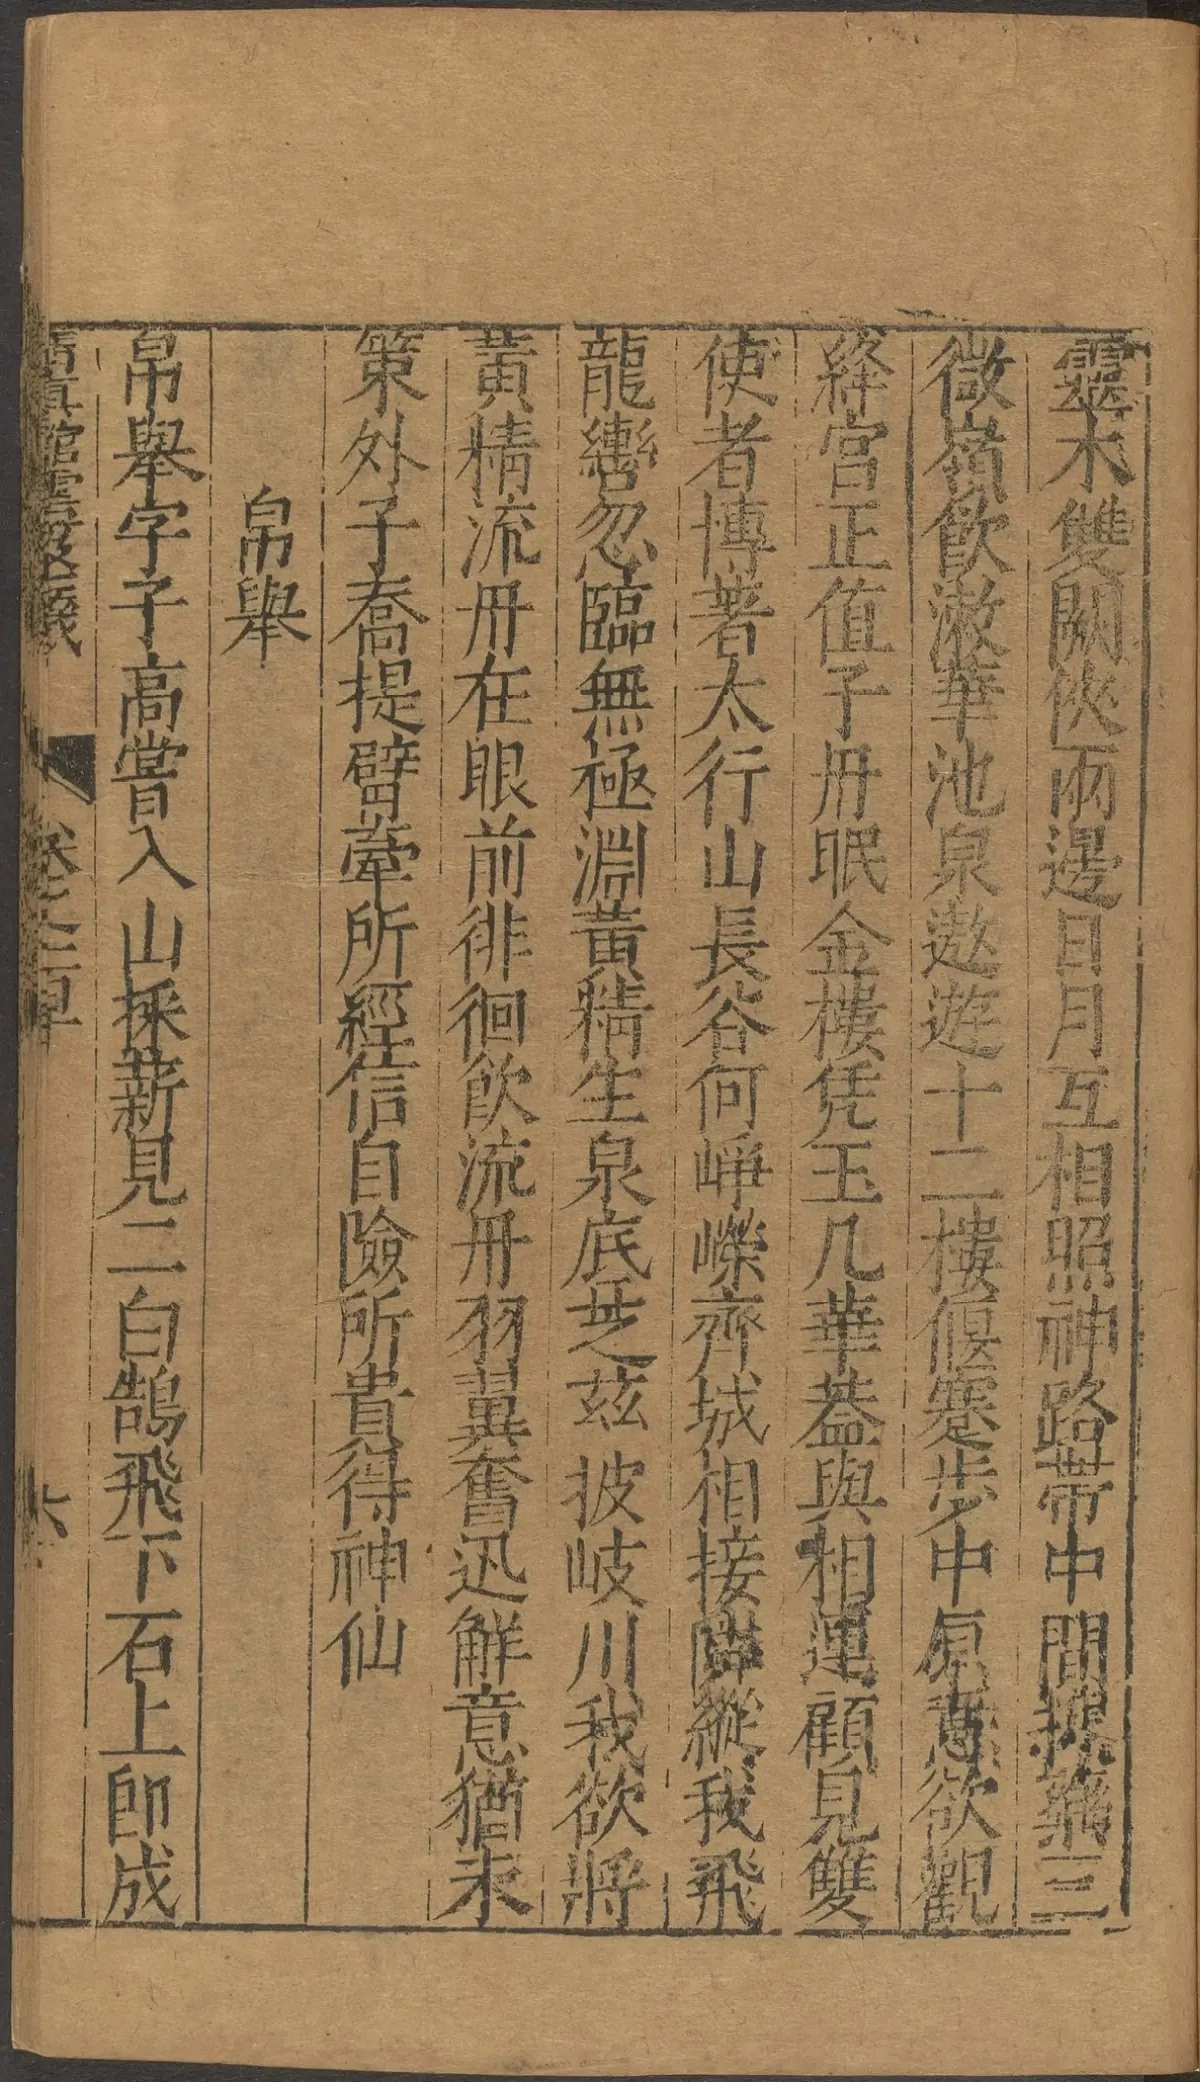 靈木雙闕俠兩邊日月互相照神路帶中間採藥三
微嶺飲漱華池泉遨遊十二樓偃蹇步中原意欲觀
絳宮正值子丹眠金樓凭玉几華葢與相連顧見雙
使者博著太行山長谷何崢嶸齊城相接隣縱我飛
龍轡忽臨無極淵黃精生泉底芝茲披岐川我欲將
黃精流丹在眼前徘徊飲流丹羽翼奮迅鮮意猶未
策外子喬提臂牽所經信自險所貴得神仙
帛舉
帛舉字子高嘗入山採薪見二白鵠飛下石上即成
清真館雲笈七籤 卷之 六